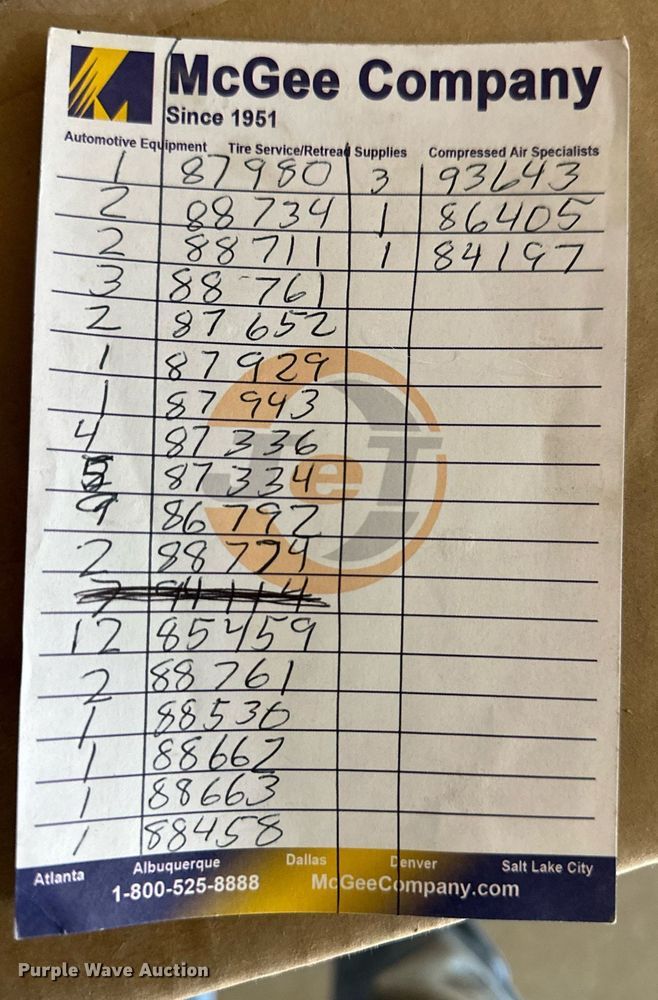 McGee Company
Since 1951
Automotive Equipment Tire Service/Retread Supplies Compressed Air Specialists
1 87980 3 93643
2 88734 1 86405
2 88711 1 84197
3 88761
2 87652
1 87929
1 87943
4 87336
5 87334
9 86792
2 88774
7 94114
12 85459
2 88761
1 88536
1 88662
1 88663
1 88458
JeT
Atlanta Albuquerque Dallas Denver Salt Lake City
1-800-525-8888 McGeeCompany.com
Purple Wave Auction